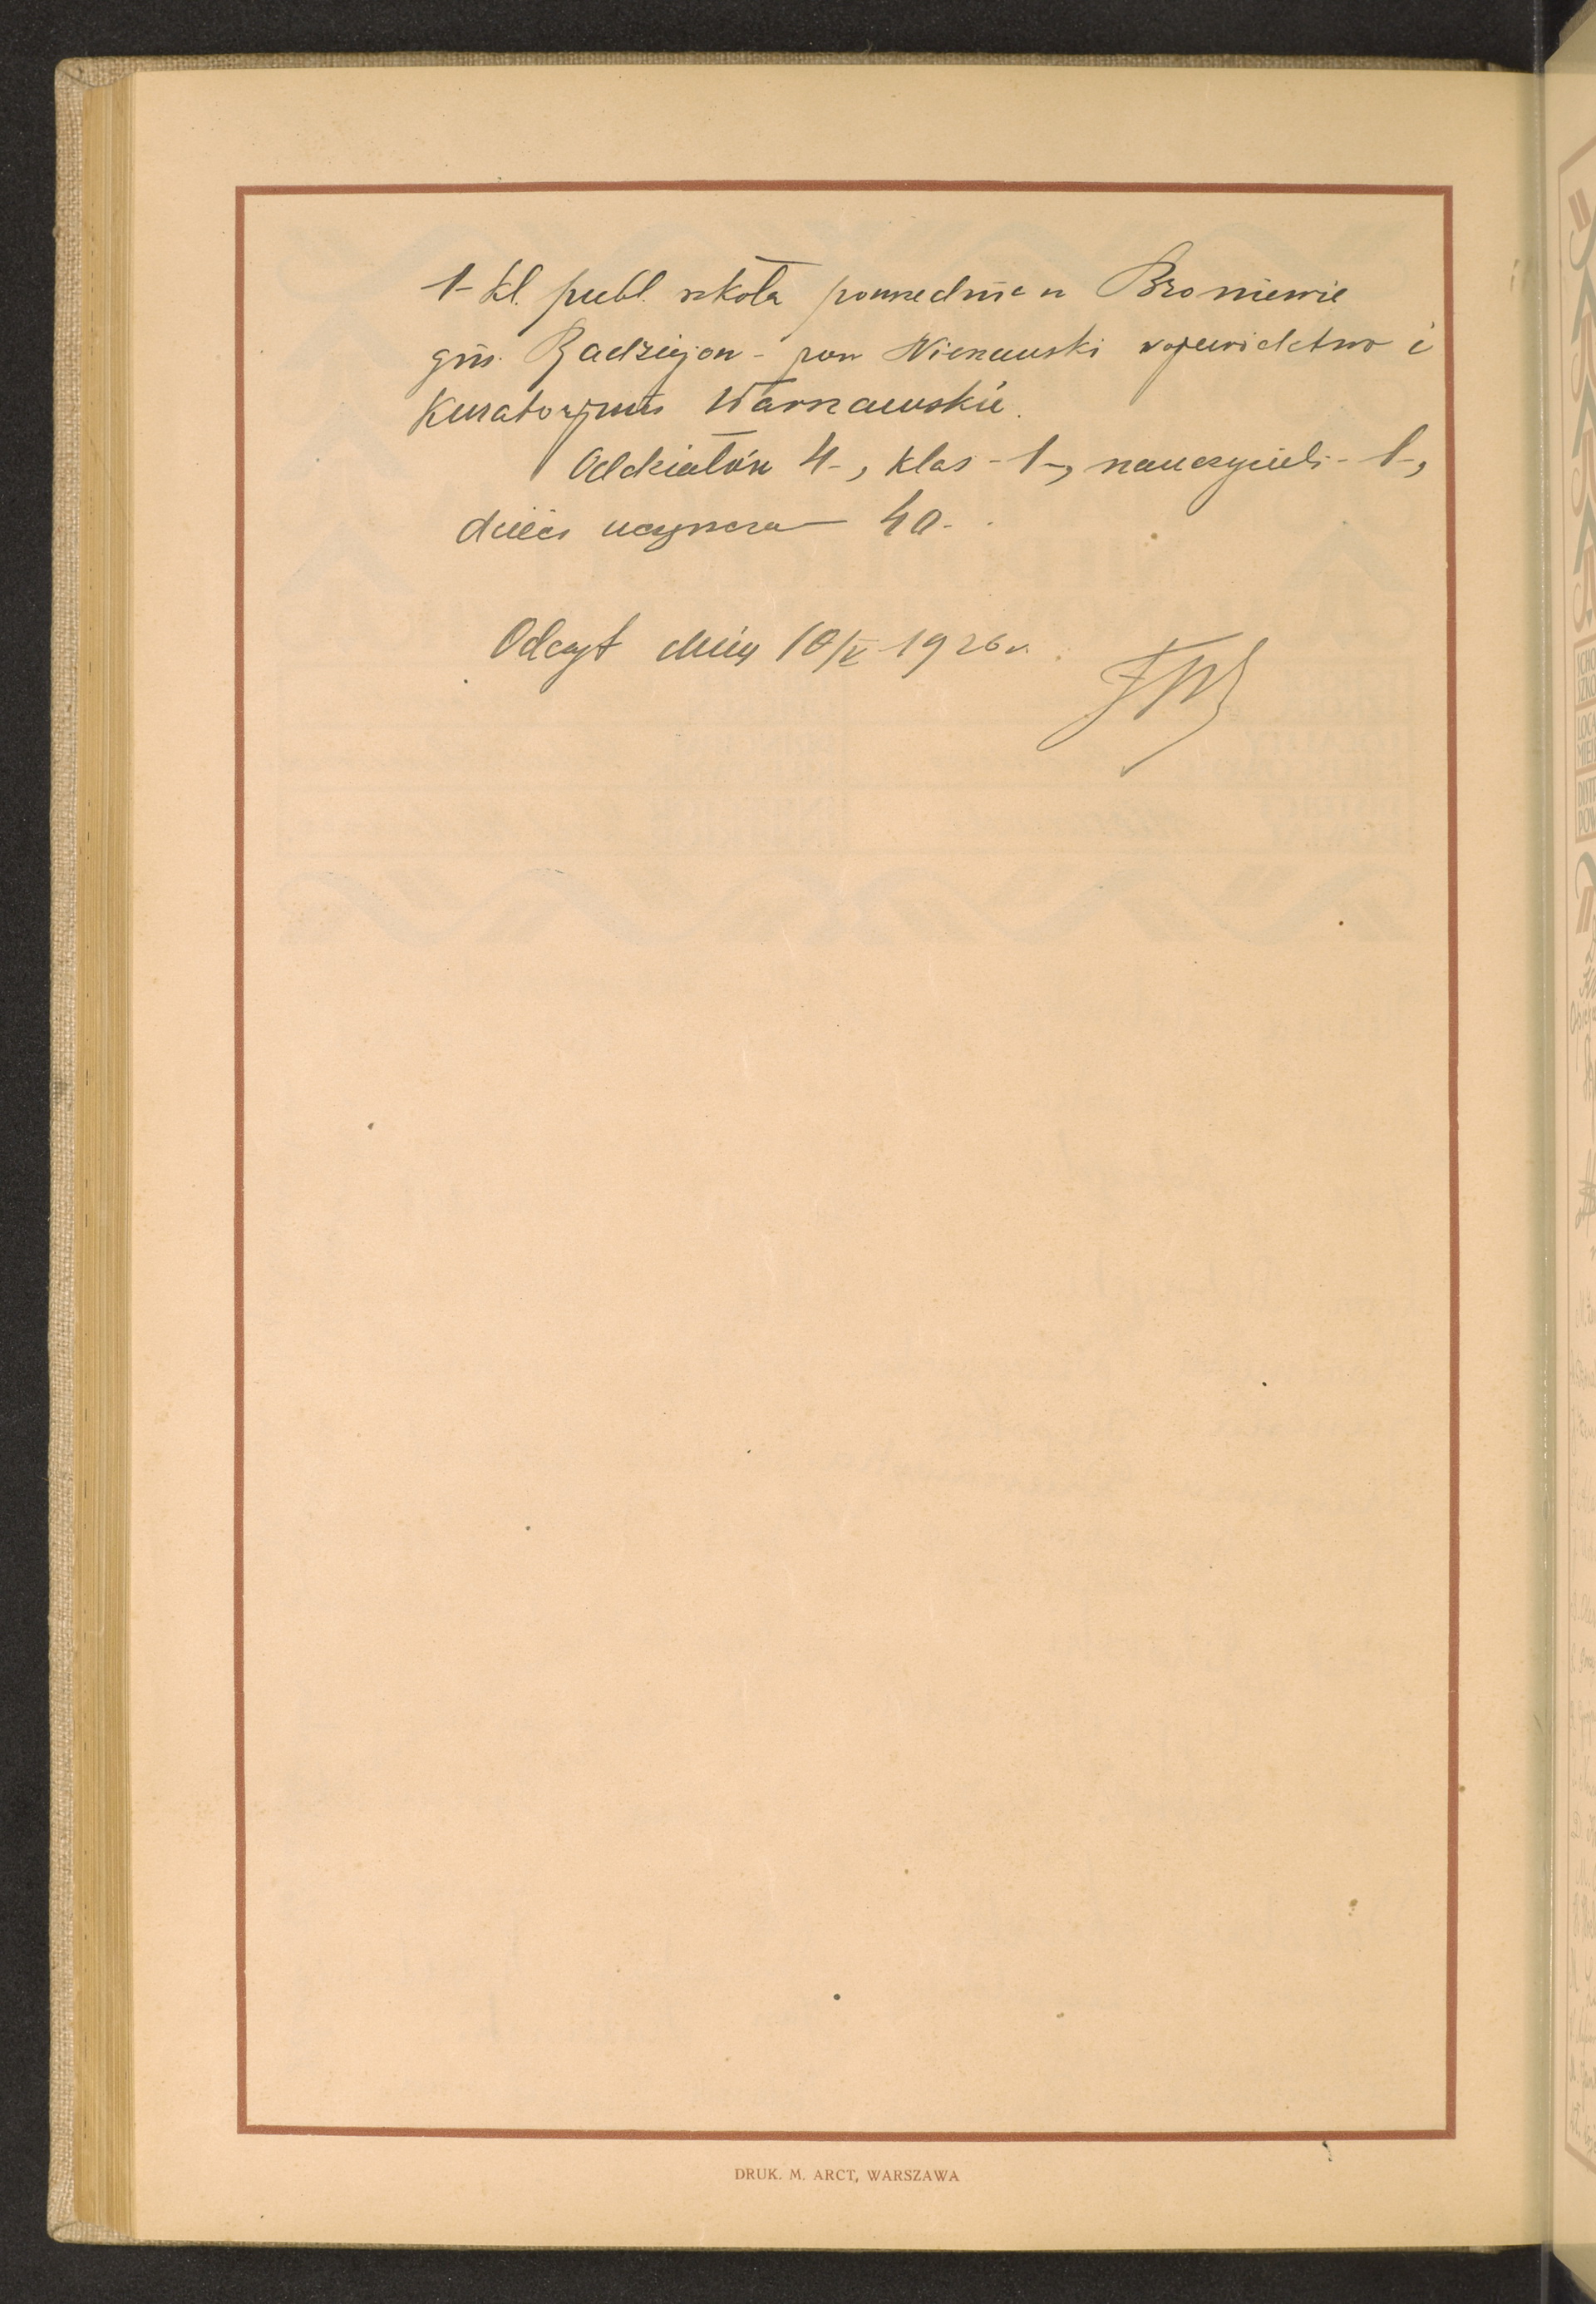 1-kl. publ. szkoła powszechna w Broniewie
gm. Radziejow - pow Nieszawski wojewodztwo i
Kuratorjum Warszawskie.
Oddziałów 4-, klas - 1-, nauczycieli - 1-,
dzieci uczęszcza - 40-.
Odczyt dnia 10/V 1926 r.
DRUK. M. ARCT, WARSZAWA